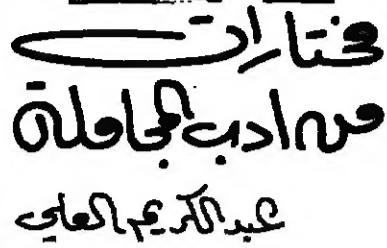 مختارات
من ادب المجاملة
عبد الكريم العلي